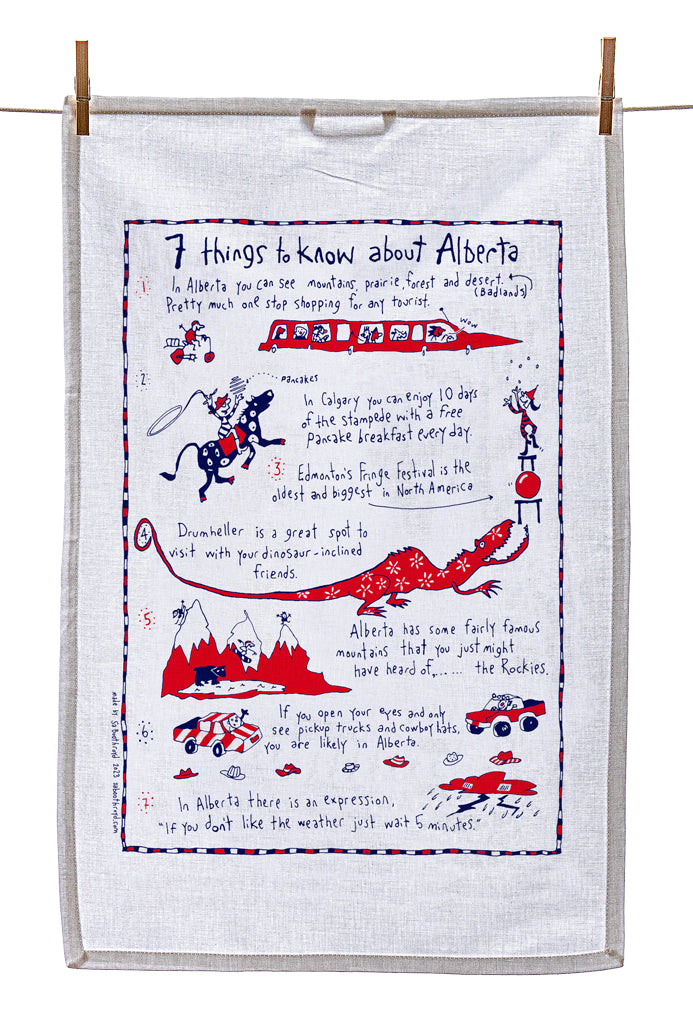 7 things to know about Alberta
1.
In Alberta you can see mountains, prairie, forest and desert.
(Badlands)
Pretty much one stop shopping for any tourist.
wow
2.
pancakes
In Calgary you can enjoy 10 days
of the stampede with a free
pancake breakfast every day.
3.
Edmonton's Fringe Festival is the
oldest and biggest in North America
4
Drumheller is a great spot to
visit with your dinosaur-inclined
friends.
5.
Alberta has some fairly famous
mountains that you just might
have heard of,...... the Rockies.
6.
If you open your eyes and only
see pickup trucks and cowboy hats,
you are likely in Alberta.
7.
In Alberta there is an expression,
"If you don't like the weather just wait 5 minutes."
made by SaBoothroyd 2023 saboothroyd.com